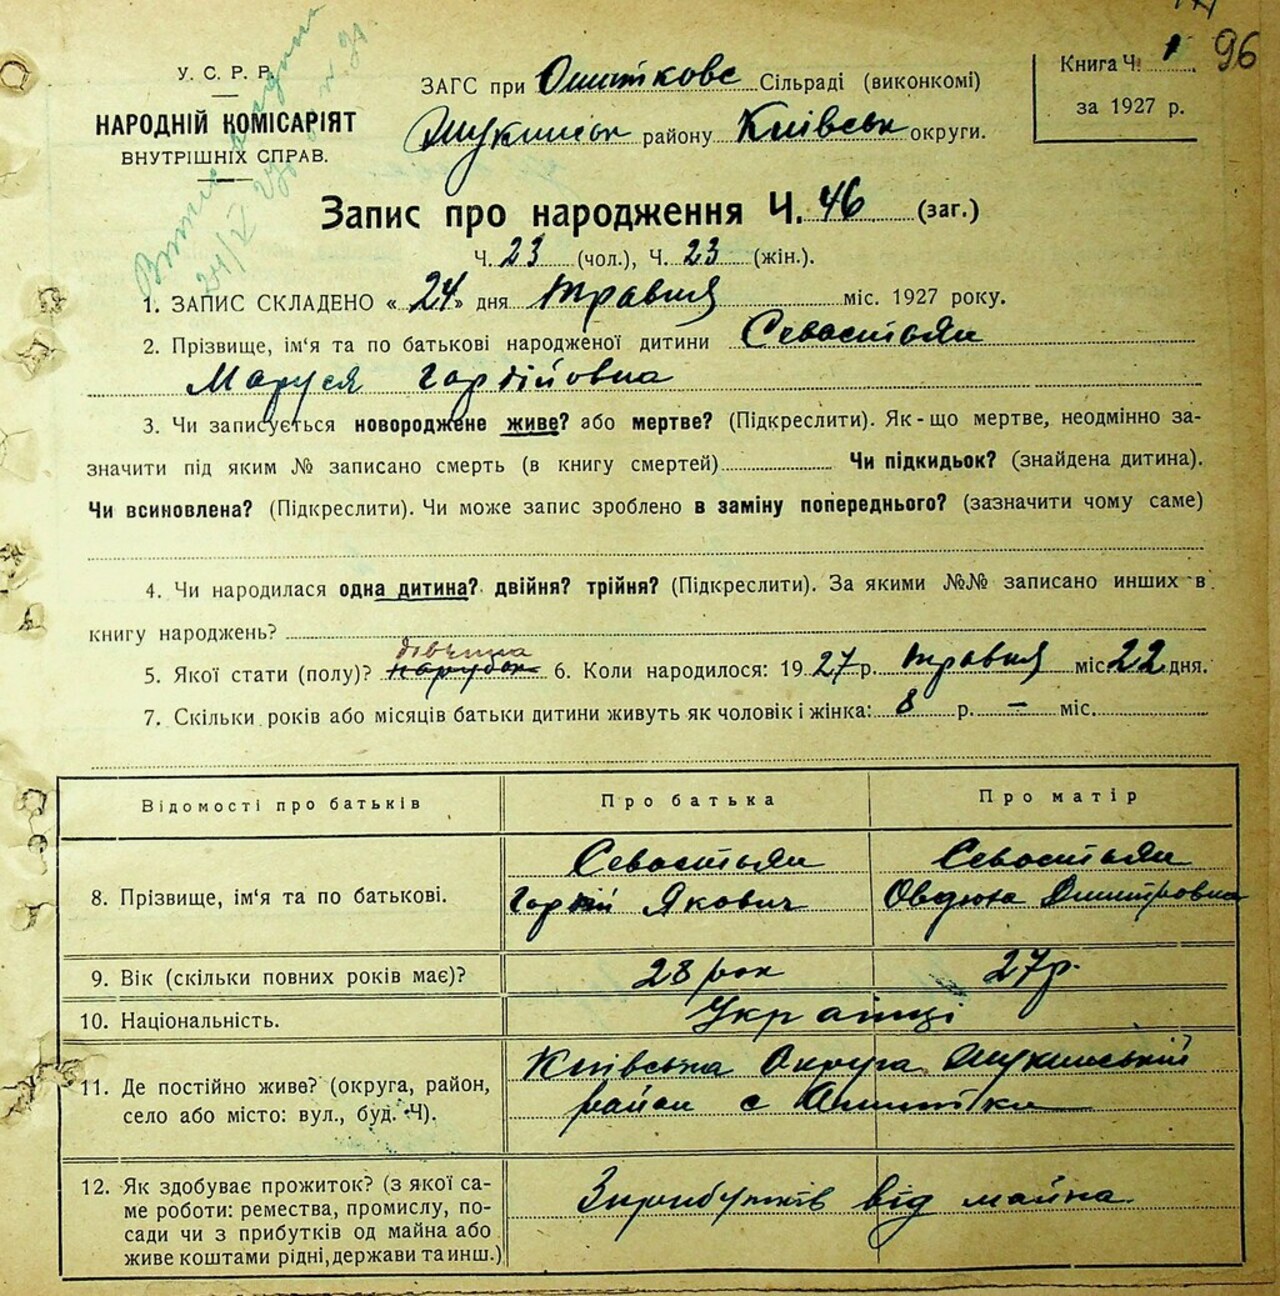 96
У. С. Р. Р.
НАРОДНІЙ КОМІСАРІЯТ
ВНУТРІШНІХ СПРАВ.
ЗАГС при Ошиткове Сільраді (виконкомі)
району Київськ округи.
Книга Ч. 1
за 1927 р.
Запис про народження Ч. 46 (заг.)
Ч. 23 (чол.), Ч. 23 (жін.).
1. ЗАПИС СКЛАДЕНО « 24 » дня травня міс. 1927 року.
2. Прізвище, ім'я та по батькові народженої дитини Севостьян
Маруся Гордійовна
3. Чи записується новороджене живе? або мертве? (Підкреслити). Як-що мертве, неодмінно за-
значити під яким № записано смерть (в книгу смертей) Чи підкидьок? (знайдена дитина).
Чи всиновлена? (Підкреслити). Чи може запис зроблено в заміну попереднього? (зазначити чому саме)
4. Чи народилася одна дитина? двійня? трійня? (Підкреслити). За якими №№ записано инших в
книгу народжень?
дівчина
5. Якої стати (полу)? парубок 6. Коли народилося: 1927 р. травня міс. 22 дня.
7. Скільки років або місяців батьки дитини живуть як чоловік і жінка: 8 р. — міс.
Відомості про батьків Про батька Про матір
Севостьян Севостьян
8. Прізвище, ім'я та по батькові. Гордій Якович Овдюха Дмитровна
9. Вік (скільки повних років має)? 28 рок 27 р.
10. Національність. Українці
Київська Округа
11. Де постійно живе? (округа, район, район с Ошитки
село або місто: вул., буд. Ч).
12. Як здобуває прожиток? (з якої са- Зприбутків від майна
ме роботи: ремества, промислу, по-
сади чи з прибутків од майна або
живе коштами рідні, держави та инш.)